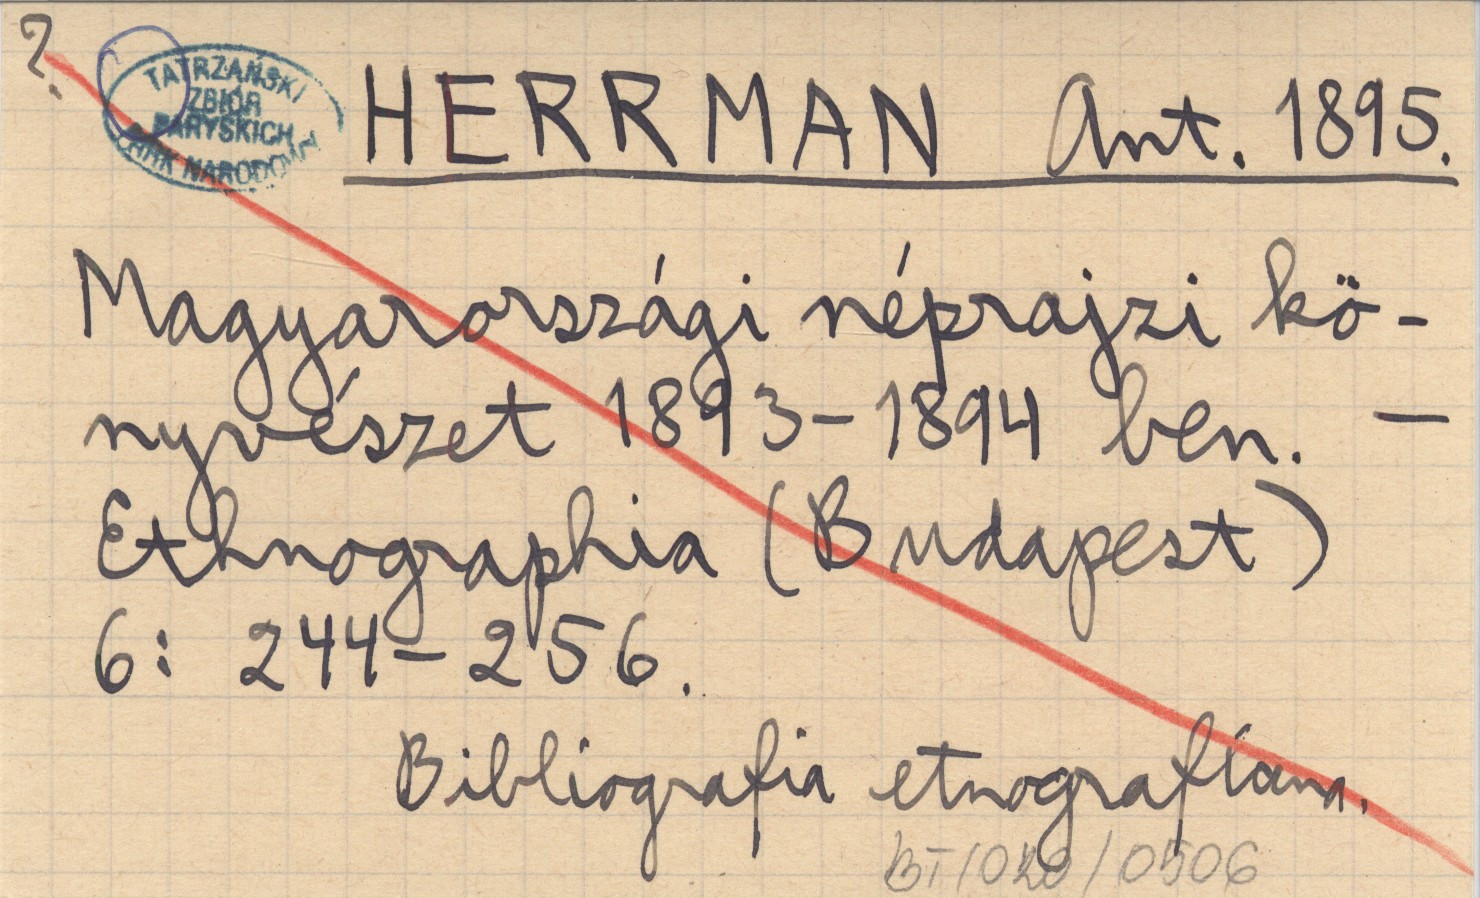 ?
TATRZAŃSKI
ZBIÓR
PARYSKICH
PARK NARODOWY
HERRMAN Ant. 1895.
Magyarországi néprajzi kö-
nyvészet 1893-1894 ben. —
Ethnographia (Budapest)
6: 244-256.
Bibliografia etnograficzna.
BT/020/0506